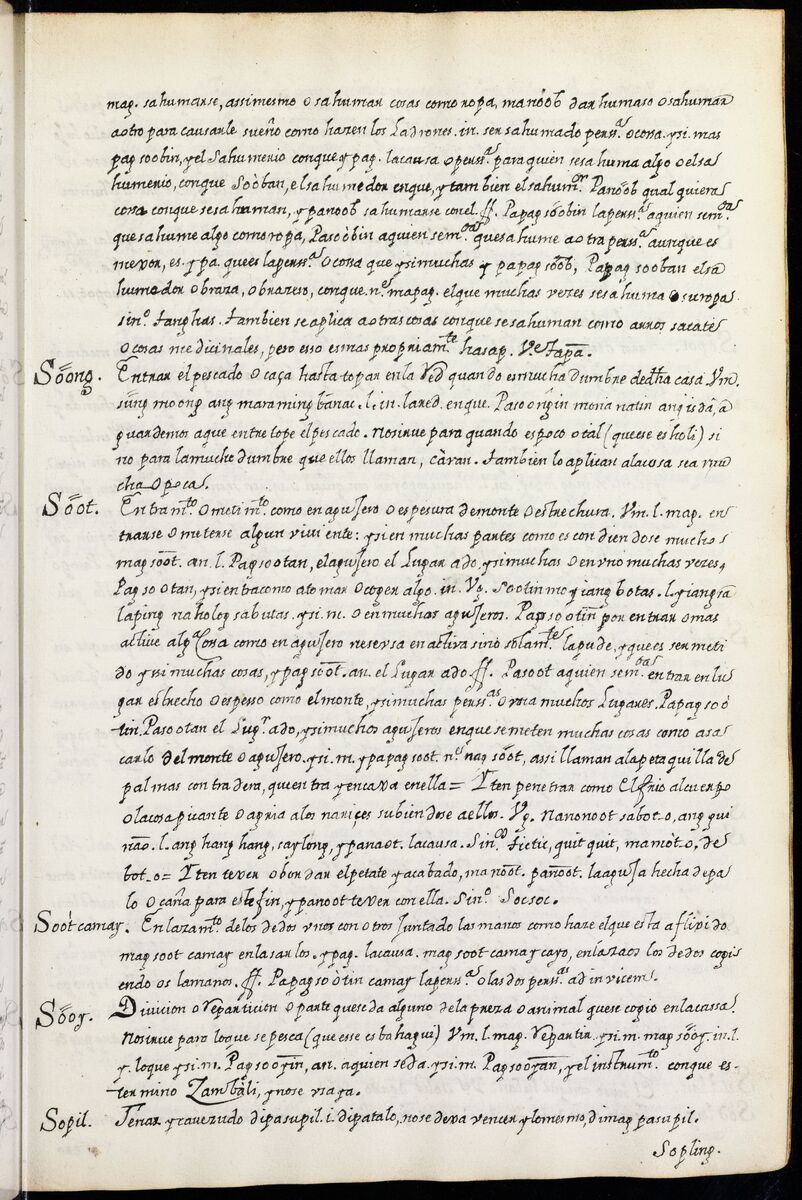 mag. sahumarse, assimesmo o sahumar cosas como ropa, manóòb dar humaso o sahumar
a otro para causarle sueño como hazen los Ladrones. in. ser sahumado perss.ª o cossa. y si. mas
pag soobin, y el Sahumerio conque y pag. la causa o perss.ª para quien se sahuma algo o el sa
humerio, conque Soòban, el sahumedor enque, y tambien el sahum.or Panoob qual quiera
cosa conque se sahuman, y panoob sahumarse con el. ff. Papag soobin la perss.ª aquien sem.das
que sahume algo como ropa, Pasoòbin aquien sem.das que sahume a otra perss.ª aunque es
mexor, es. y pa. que es la perss.ª o cossa que y si muchas y papag soob, Papag sooban el sa
humador o braza, o brazero, conque. n.e mapag. el que muchas vezes se sahuma o su ropa.
sin.o tanghas. tambien se aplica a otras cosas conque se sahuman como arros sacate
o cosas medicinales, pero esso es mas propriam.te hasap. V.e tapa.
Soong. Entrar el pescado o caça hasta topar en la Red quando es muchadumbre de d.tha casa Vm.
sung moong ang maraming banac. l. in. la red. enque. Pasoongin mona natin ang isda, a
guardemos a que entre tope el pescado. no sirve para quando es poco o tal (que ese es holi) si
no para la muchedumbre que ellos llaman, càvan. tambien lo aplican a la cossa sea mu
cha o poca.
Soot. Entram.to o metim.to como en agujero o espesura de monte o estrechura. Vm. l. mag. en
trarse o meterse algun viviente: y si en muchas partes como escondiendose muchos
mag soot. an. l. Pagsootan, el agujero el Lugar ado, y si muchas o en vno muchas vezes,
Pagsootan, y si entra como a tomar o coger algo. in. Vg. sootin mo yiang botas. l. yiangia
laping naholog sa butas. y si. m. o en muchos agujeros. Pagsootin por entrar o mas
active alg.ª Cosa como en agujero ne serva en activa sino solam.te la pude, y que es ser meti
do y si muchas cosas, y pag soot. an. el Lugar ado ff. Pasoot aquien sem.das entrar en lu
gar estrecho o espesso como el monte, y si muchas perss.as o vna muchos Lugares. Papagsoo
tin. Pasootan el Lug.r ado, y si muchos agujeros enque se meten muchas cosas como a sa
carlo del monte o agujero. y si. m. y papag soot. n.e nag soot, assi llaman a la petaquilla de
palmas contradera, que entra y encaxa en ella = Yten penetrar como El frio al cuerpo
o la cosa picante o agria a los narices subiendose a ellos. Vg. Nanonoot sa bot.o, ang gui
nao. l. ang hang hang, saylong, y panaot. la causa. Sin.o tictic, quit quit, mamot.o, de
bot.o = Yten texer o bordar el petate y acabado, manoot. panoot. la aguja hecha de pa
lo o caña para este fin, y panoot texer con ella. Sin.o Socsoc.
Soòt camay. Enlazam.to de los dedos vnos con otros juntado las manos como haze el que esta aflixido
mag soot camay enlasarlos. y pag. la causa. mag soot camay cayo, enlazaos los dedos cogi
endo os las manos. ff. Papagsoòtin camay la perss.ª o las dos perss.as ad invicem.
Sooy. Divicion o Reparticion o parte que se da alguno de la preza o animal que se cogio en la cassa.
no sirve para lo que se pesca (que esse es bahagui) Vm. l. mag. Repartir. y si. m. mag sooy. in. l.
y. lo que y si. m. Pagsooyin, an. aquien se da. y si. m. Pagsooyan, y el instrum.to conque es-
termino Zambali, y no se vsa ya.
Sopil. Tenaz y cavezudo di pasupil. i. dipatalo, no se dexa vencer y lo mesmo, dimag pasupil.
Sopling.